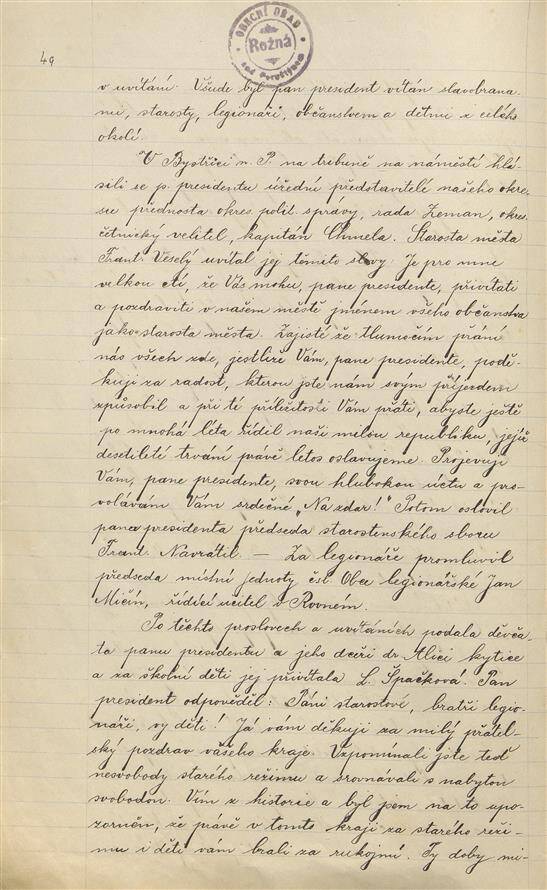 49
OBECNÍ ÚŘAD
Rožná
nad Pernštýnem
v uvítání. Všude byl pan president vítán slavobrana-
mi, starosty, legionáři, občanstvem a dětmi z celého
okolí.
V Bystřici n. P. na tribuně na náměstí hlá-
sili se p. presidentu úřední představitelé našeho okre-
su přednosta okres. polit. správy, rada Zeman, okres.
četnický velitel, kapitán Chmela. Starosta města
Frant. Veselý uvítal jej těmito slovy: Je pro mne
velkou ctí, že Vás mohu, pane presidente, přivítati
a pozdraviti v našem městě jménem všeho občanstva
jako starosta města. Zajisté že tlumočím přání
nás všech zde, jestliže Vám, pane presidente, podě-
kuji za radost, kterou jste nám svým příjezdem
způsobil a při té příležitosti Vám přáti, abyste ještě
po mnohá léta řídil naši milou republiku, jejíž
desetileté trvání právě letos oslavujeme. Projevuji
Vám, pane presidente, svou hlubokou úctu a pro-
volávám Vám srdečné „Na zdar!" Potom oslovil
pana presidenta předseda starostenského sboru
Frant. Navrátil. — Za legionáře promluvil
předseda místní jednoty čsl. Obce legionářské Jan
Mičín, řídící učitel v Rovném.
Po těchto proslovech a uvítáních podala děvča-
ta panu presidentu a jeho dceři dr. Alici kytice
a za školní děti jej přivítala L. Špačková. Pan
president odpověděl: Páni starostové, bratři legio-
náři, vy děti! Já vám děkuji za milý přátel-
ský pozdrav vašeho kraje. Vzpomínali jste teď
nesvobody starého režimu a srovnávali s nabytou
svobodou. Vím z historie a byl jsem na to upo-
zorněn, že právě v tomto kraji za starého reži-
mu i děti vám brali za rukojmí. Ty doby mi-